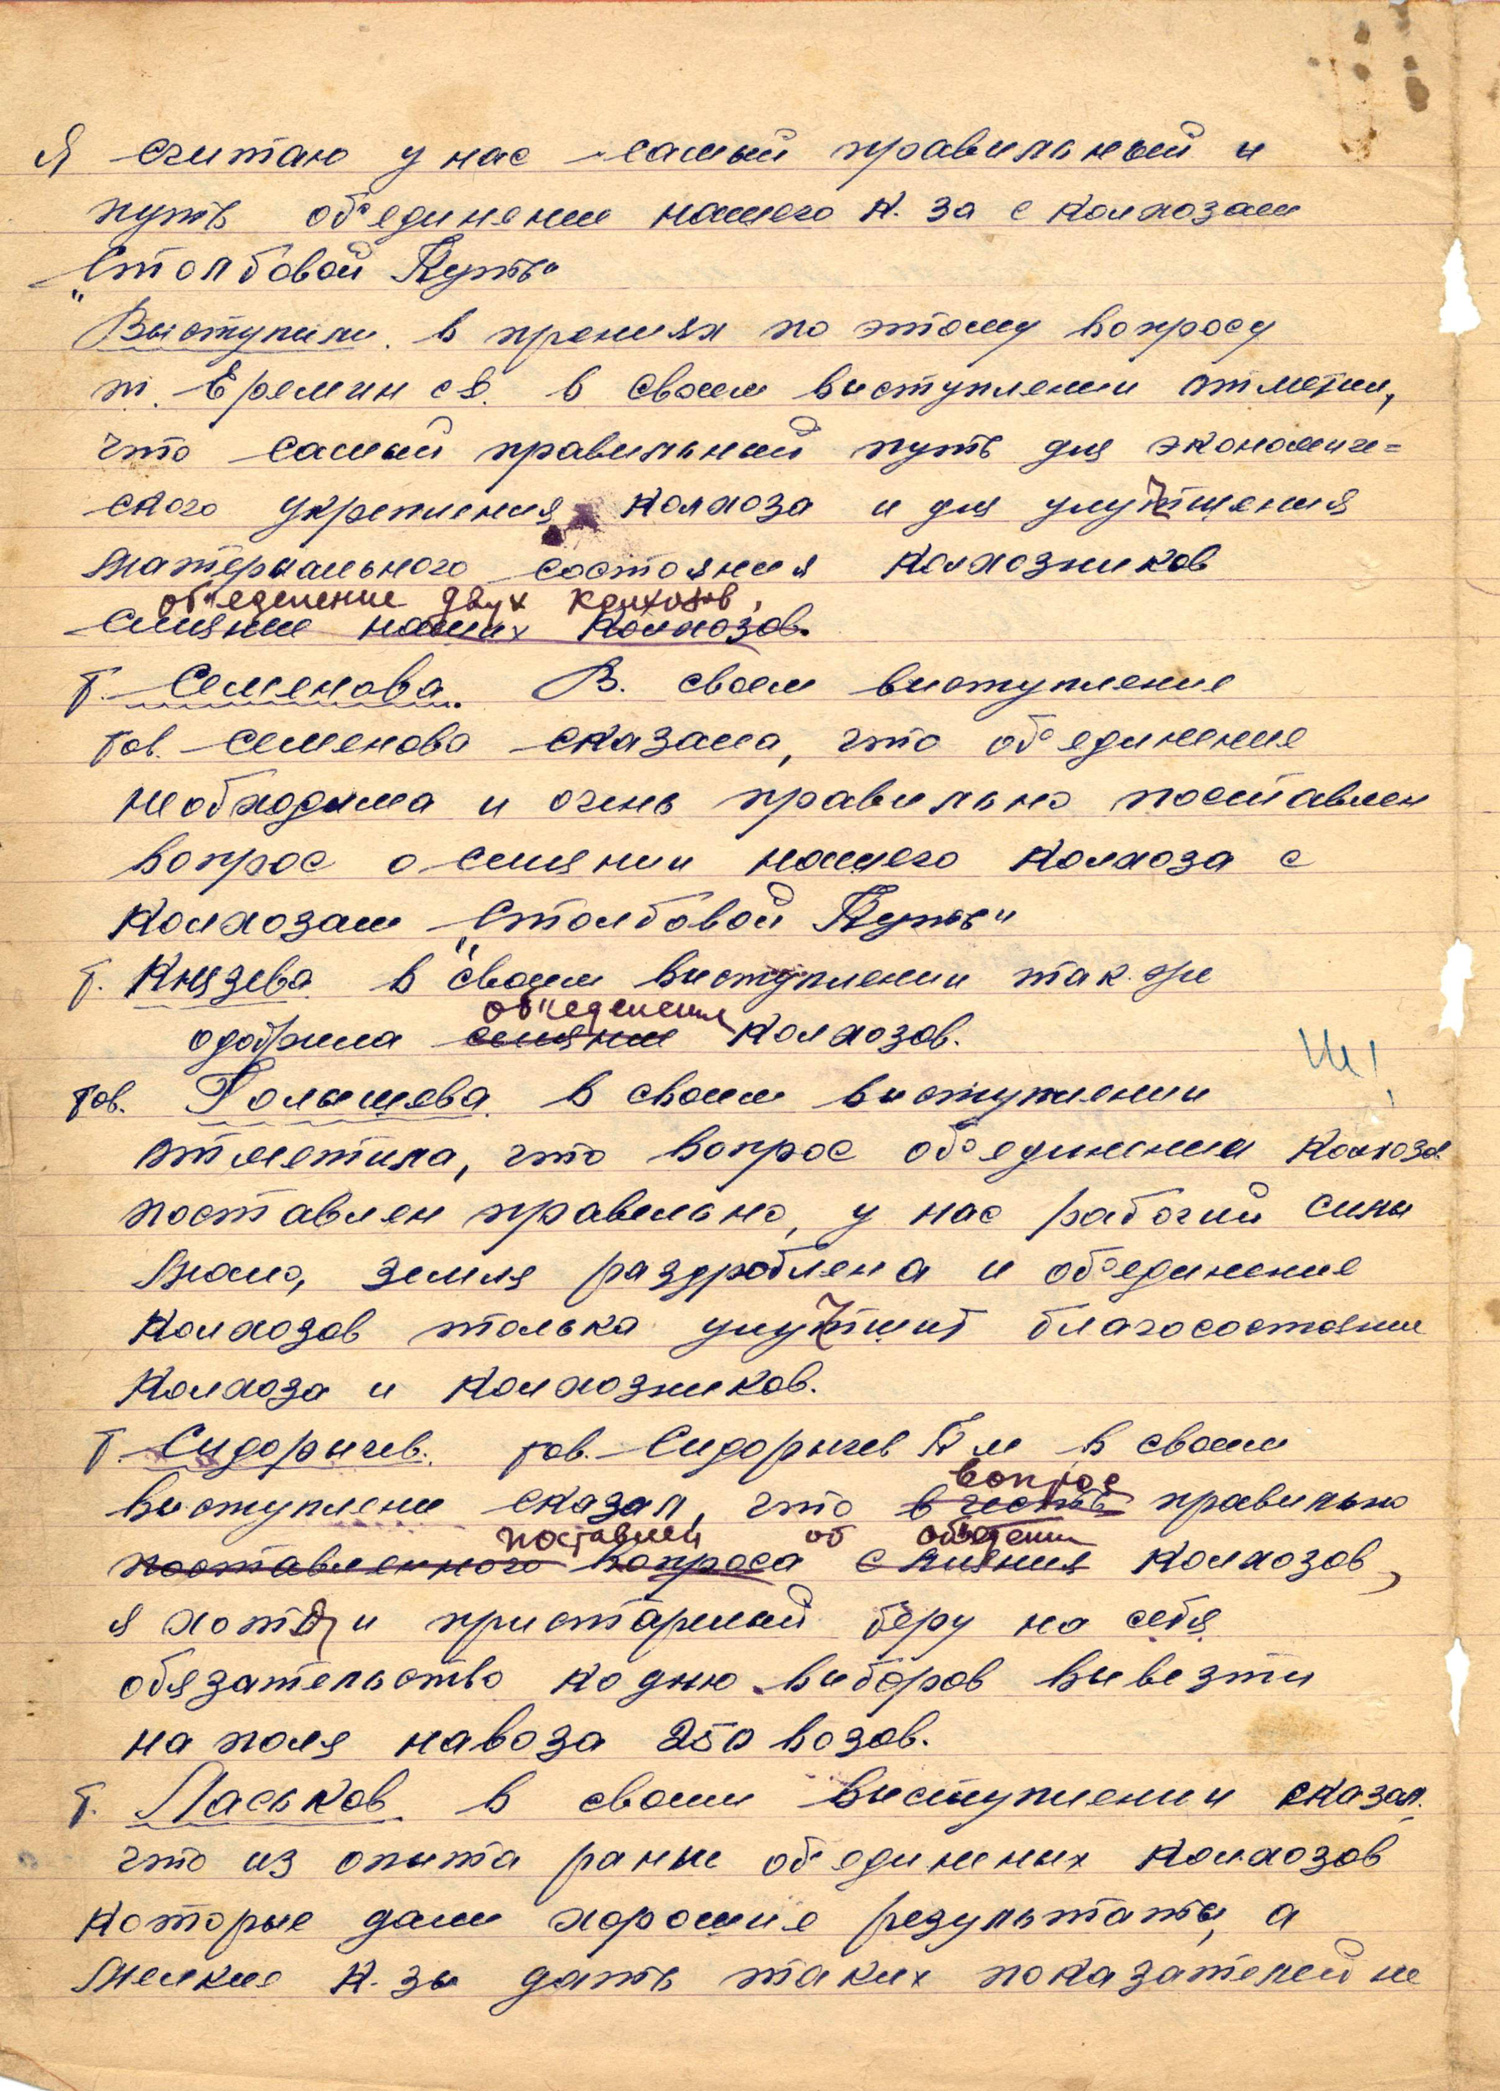 Я считаю у нас самый правильный и
путь об'единении нашего к-за с колхозам
"Столбовой Путь"
Выступили в прениях по этому вопросу
т. Еремин с в. в своем выступлении отметил,
что самый правильный путь для экономиче=
ского укрепления колхоза и для улучшения
материального состояния колхозников
об'еденение двух колхозов,
слияние наших колхозов.
т. Семенова. В. своем выступление
тов. Семенова сказала, что об'единение
необходима и очень правильно поставлен
вопрос о слиянии нашего колхоза с
колхозам "Столбовой Путь"
т. Князева в своем выступлении так-же
об'еденения
одобрила слияние колхозов.
тов. Голышева в своем выступлении
отметила, что вопрос об'единения колхоза
поставлен правельно, у нас рабочий силы
мало, земля раздроблена и об'единение
колхозов толька улучшит благосостояние
колхоза и колхозников.
т. Сидорычев. тов. Сидорычев П м в своем
вопрос
выступлени сказал, что правильно
поставлен об объедении
поставленного вопроса слияния колхозов,
я хотя и пристарелый беру на себя
обязательство ко дню выборов вывезти
на поля навоза 250 возов.
т. Паськов в своем выступлении сказал.
что из опыта ранье об'единеных колхозов
которые дали хорошие результаты, а
мелкие к-зы дать таких показателей не